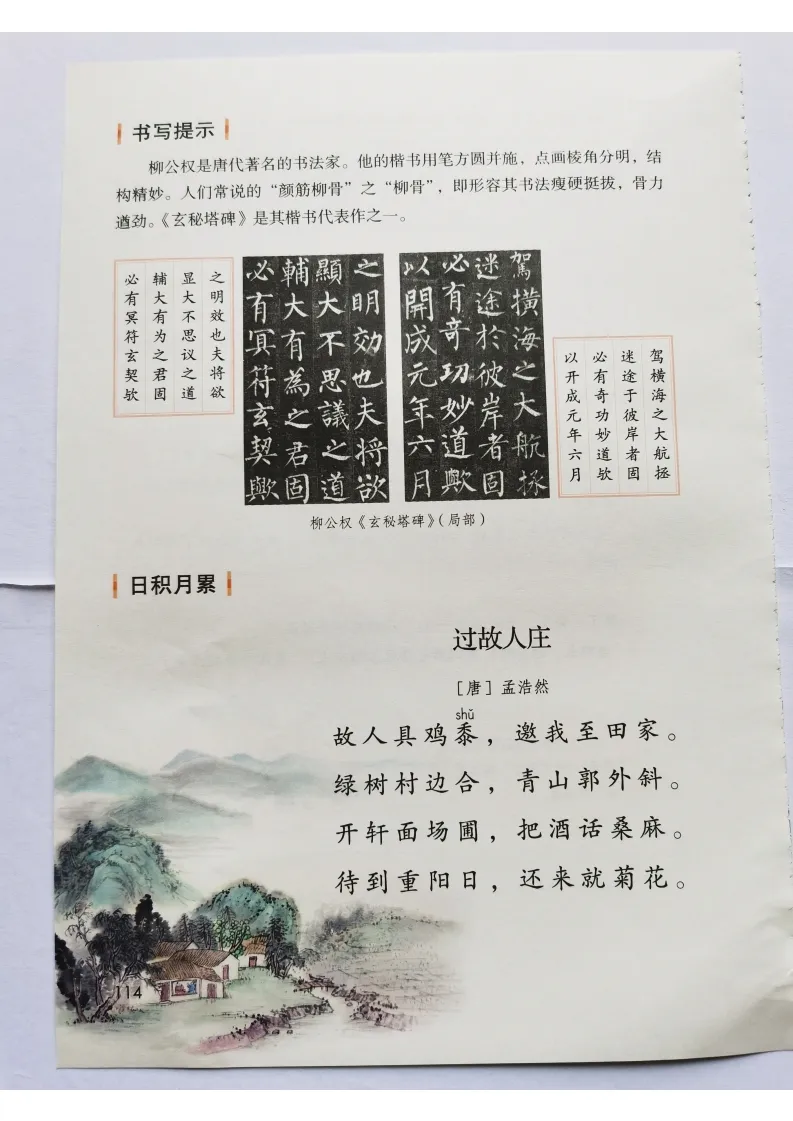 书写提示
柳公权是唐代著名的书法家。他的楷书用笔方圆并施，点画棱角分明，结
构精妙。人们常说的“颜筋柳骨”之“柳骨”，即形容其书法瘦硬挺拔，骨力
遒劲。《玄秘塔碑》是其楷书代表作之一。
驾横海之大航拯
迷途于彼岸者固
必有奇功妙道欤
以开成元年六月
駕橫海之大航拯
迷途於彼岸者固
必有奇功妙道歟
以開成元年六月
之明効也夫将欲
顯大不思議之道
輔大有為之君固
必有冥符玄契歟
之明效也夫将欲
显大不思议之道
辅大有为之君固
必有冥符玄契欤
柳公权《玄秘塔碑》（局部）
日积月累
过故人庄
［唐］孟浩然
shǔ
故人具鸡黍，邀我至田家。
绿树村边合，青山郭外斜。
开轩面场圃，把酒话桑麻。
待到重阳日，还来就菊花。
114